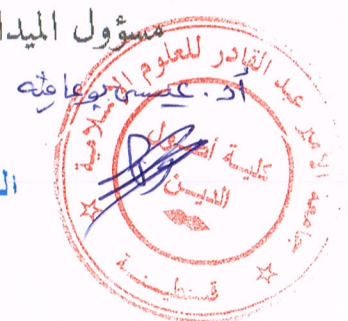 مسؤول الميدا
أ.د. عيسى بوعافية
ال
جامعة الأمير عبد القادر للعلوم الإسلامية
كلية أصول
الدين
قسنطينة